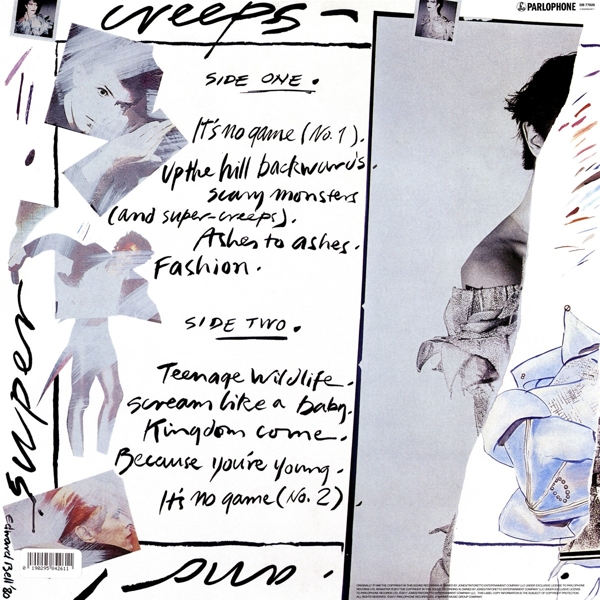 creeps
PARLOPHONE
SIDE ONE.
It's no game (No. 1).
Up the hill backwards.
Scary monsters
(and super-creeps).
Ashes to ashes.
Fashion.
SIDE TWO.
Teenage Wildlife.
Scream like a Baby.
Kingdom come.
Because You're Young.
It's no game (No. 2).
super
Edward Bell '80
0 190295 842611